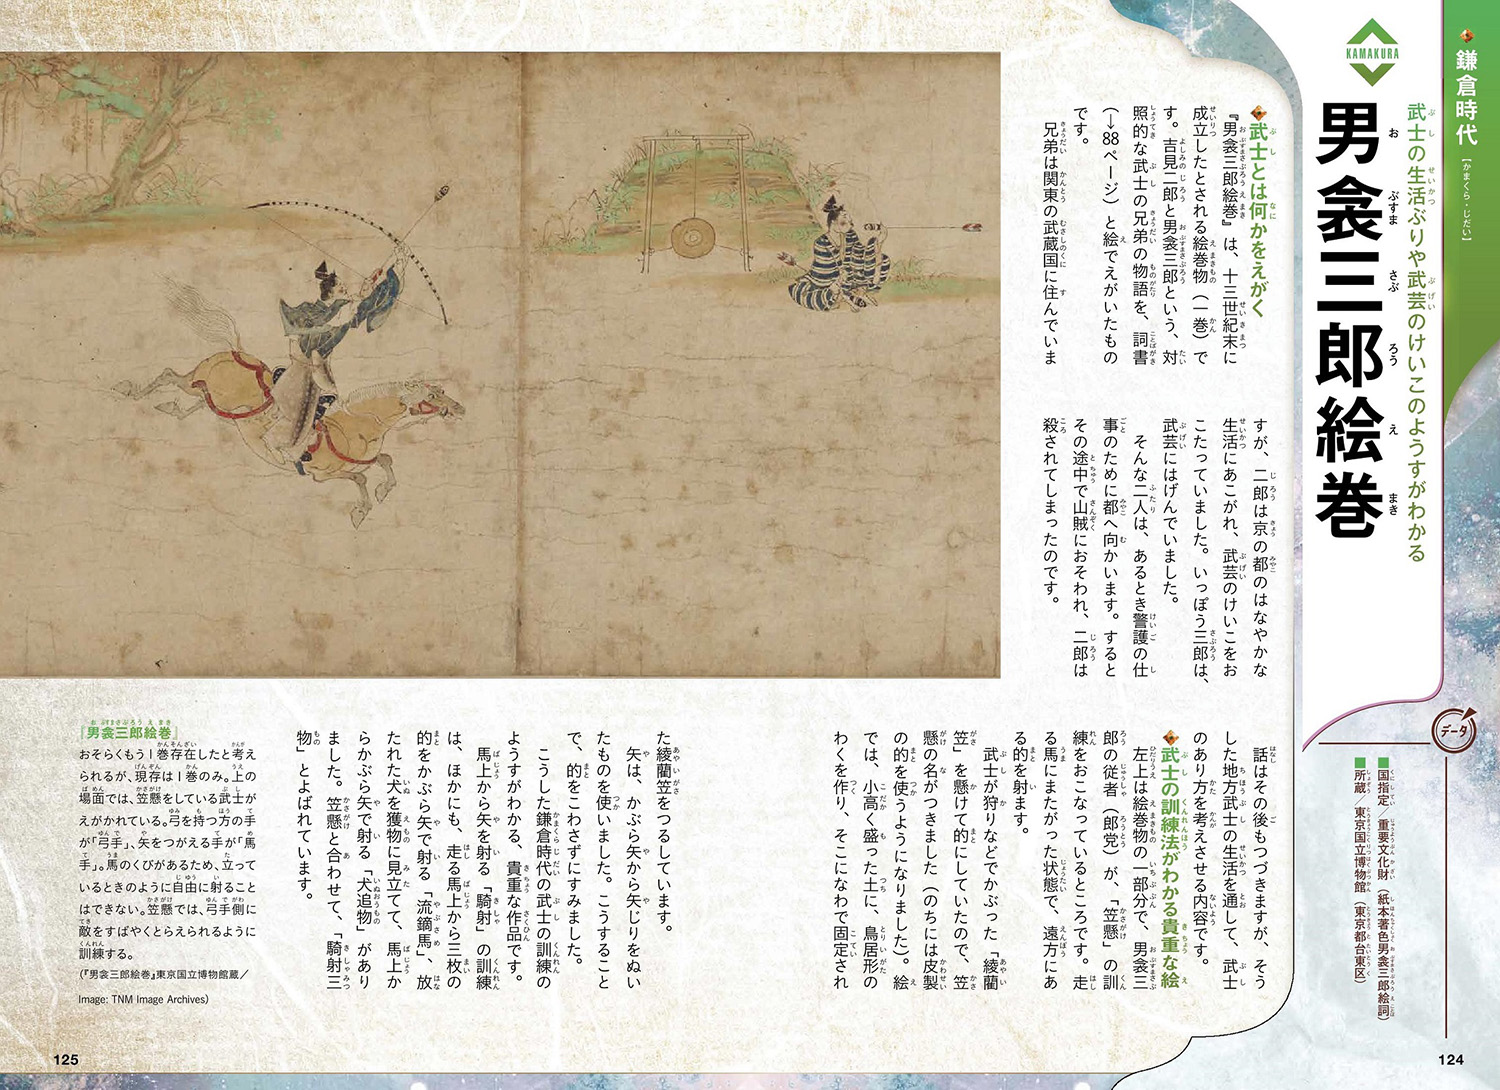 鎌倉時代
［かまくら・じだい］
KAMAKURA
武士の生活ぶりや武芸のけいこのようすがわかる
男衾三郎絵巻
データ
■国指定／重要文化財（紙本著色男衾三郎絵詞）
■所蔵／東京国立博物館（東京都台東区）
武士とは何かをえがく
『男衾三郎絵巻』は、十三世紀末に
成立したとされる絵巻物（一巻）で
す。吉見二郎と男衾三郎という、対
照的な武士の兄弟の物語を、詞書
（→88ページ）と絵でえがいたもの
です。
兄弟は関東の武蔵国に住んでいま
すが、二郎は京の都のはなやかな
生活にあこがれ、武芸のけいこをお
こたっていました。いっぽう三郎は、
武芸にはげんでいました。
そんな二人は、あるとき警護の仕
事のために都へ向かいます。すると
その途中で山賊におそわれ、二郎は
殺されてしまったのです。
話はその後もつづきますが、そう
した地方武士の生活を通して、武士
のあり方を考えさせる内容です。
武士の訓練法がわかる貴重な絵
左上は絵巻物の一部分で、男衾三
郎の従者（郎党）が、「笠懸」の訓
練をおこなっているところです。走
る馬にまたがった状態で、遠方にあ
る的を射ます。
武士が狩りなどでかぶった「綾藺
笠」を懸けて的にしていたので、笠
懸の名がつきました（のちには皮製
の的を使うようになりました）。絵
では、小高く盛った土に、鳥居形の
わくを作り、そこになわで固定され
た綾藺笠をつるしています。
矢は、かぶら矢から矢じりをぬい
たものを使いました。こうすること
で、的をこわさずにすみました。
こうした鎌倉時代の武士の訓練の
ようすがわかる、貴重な作品です。
馬上から矢を射る「騎射」の訓練
は、ほかにも、走る馬上から三枚の
的をかぶら矢で射る「流鏑馬」、放
たれた犬を獲物に見立てて、馬上か
らかぶら矢で射る「犬追物」があり
ました。笠懸と合わせて、「騎射三
物」とよばれています。
『男衾三郎絵巻』
おそらくもう1巻存在したと考え
られるが、現存は1巻のみ。上の
場面では、笠懸をしている武士が
えがかれている。弓を持つ方の手
が「弓手」、矢をつがえる手が「馬
手」。馬のくびがあるため、立って
いるときのように自由に射ること
はできない。笠懸では、弓手側に
敵をすばやくとらえられるように
訓練する。
（『男衾三郎絵巻』東京国立博物館蔵／
Image: TNM Image Archives）
125
124